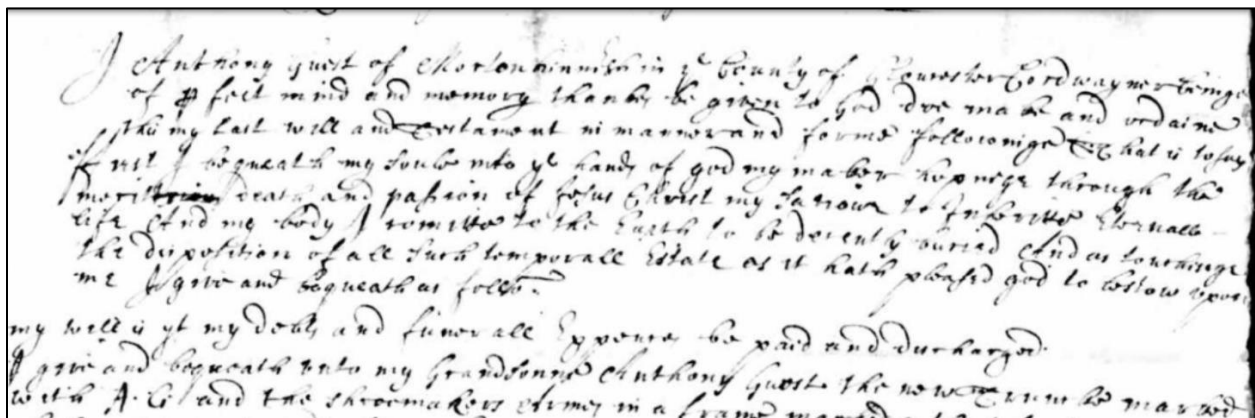 I Anthony Guest of Morton hinmish in ye County of Gloucester Cordwayner being
of pfect mind and memory thankes be given to God doe make and ordaine
this my last will and Testament in manner and forme followinge That is to say
ffirst I bequeath my soule into ye hands of god my maker hopeinge through the
meritt death and passion of Jesus Christ my Saviour to Inheritte Eternall
life And my body I comitte to the Earth to be decently buried And as touchinge
the disposition of all such temporall Estate as it hath pleased god to bestow upon
me I give and bequeath as follo:
my will is yt my debts and funerall Expences be paid and discharged
I give and bequeath unto my Grandsonne Anthony Guest the new Trunke marked
with A: G: and the shoemakers Armes in a frame